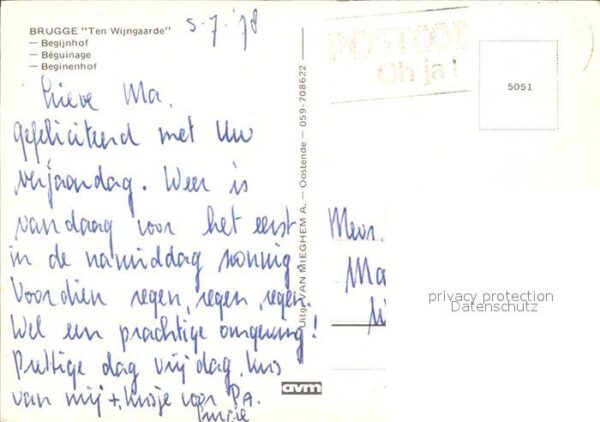 BRUGGE "Ten Wijngaarde"
— Begijnhof
— Béguinage
— Beginenhof
5-7-'78
POSTCODE
Oh ja!
5051
Lieve Ma.
gefeliciteerd met Uw
verjaardag. Weer is
vandaag voor het eerst
in de namiddag zonnig
Voordien regen, regen, regen.
Wel een prachtige omgeving!
Prettige dag vrijdag, kus
van mij + kusje voor Pa.
Uitg. VAN MIEGHEM A. — Oostende — 059-708622
avm
Mevr.
Ma
privacy protection
Datenschutz